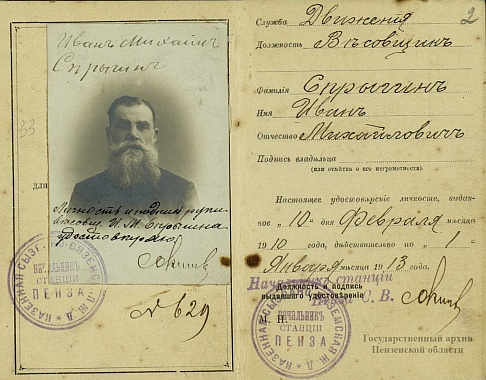 Иванъ Михайл
Спрыгинъ
33
для
Личность и подпись руки
вѣсовщ. И. М. Спрыгина
удостовѣряю
КАЗЕННАЯ СЫЗ. ВЯЗЕМСКАЯ Ж.Д.
НАЧАЛЬНИКЪ
СТАНЦІИ
ПЕНЗА
№ 629
2
Служба Движенія
Должность Вѣсовщикъ
Фамилія Спрыгинъ
Имя Иванъ
Отчество Михайловичъ
Подпись владѣльца
(или отмѣтка о его неграмотности)
Настоящее удостовѣреніе личности, выдан-
ное „10“ дня Февраля мѣсяца
1910 года, дѣйствительно по „1“
Января мѣсяца 1913 года.
Начальникъ станціи
Должность и подпись
выдавшаго удостовѣреніе
С. В.
М. П.
КАЗЕННАЯ СЫЗ. ВЯЗЕМСКАЯ Ж.Д.
НАЧАЛЬНИКЪ
СТАНЦІИ
ПЕНЗА
Государственный архив
Пензенской области